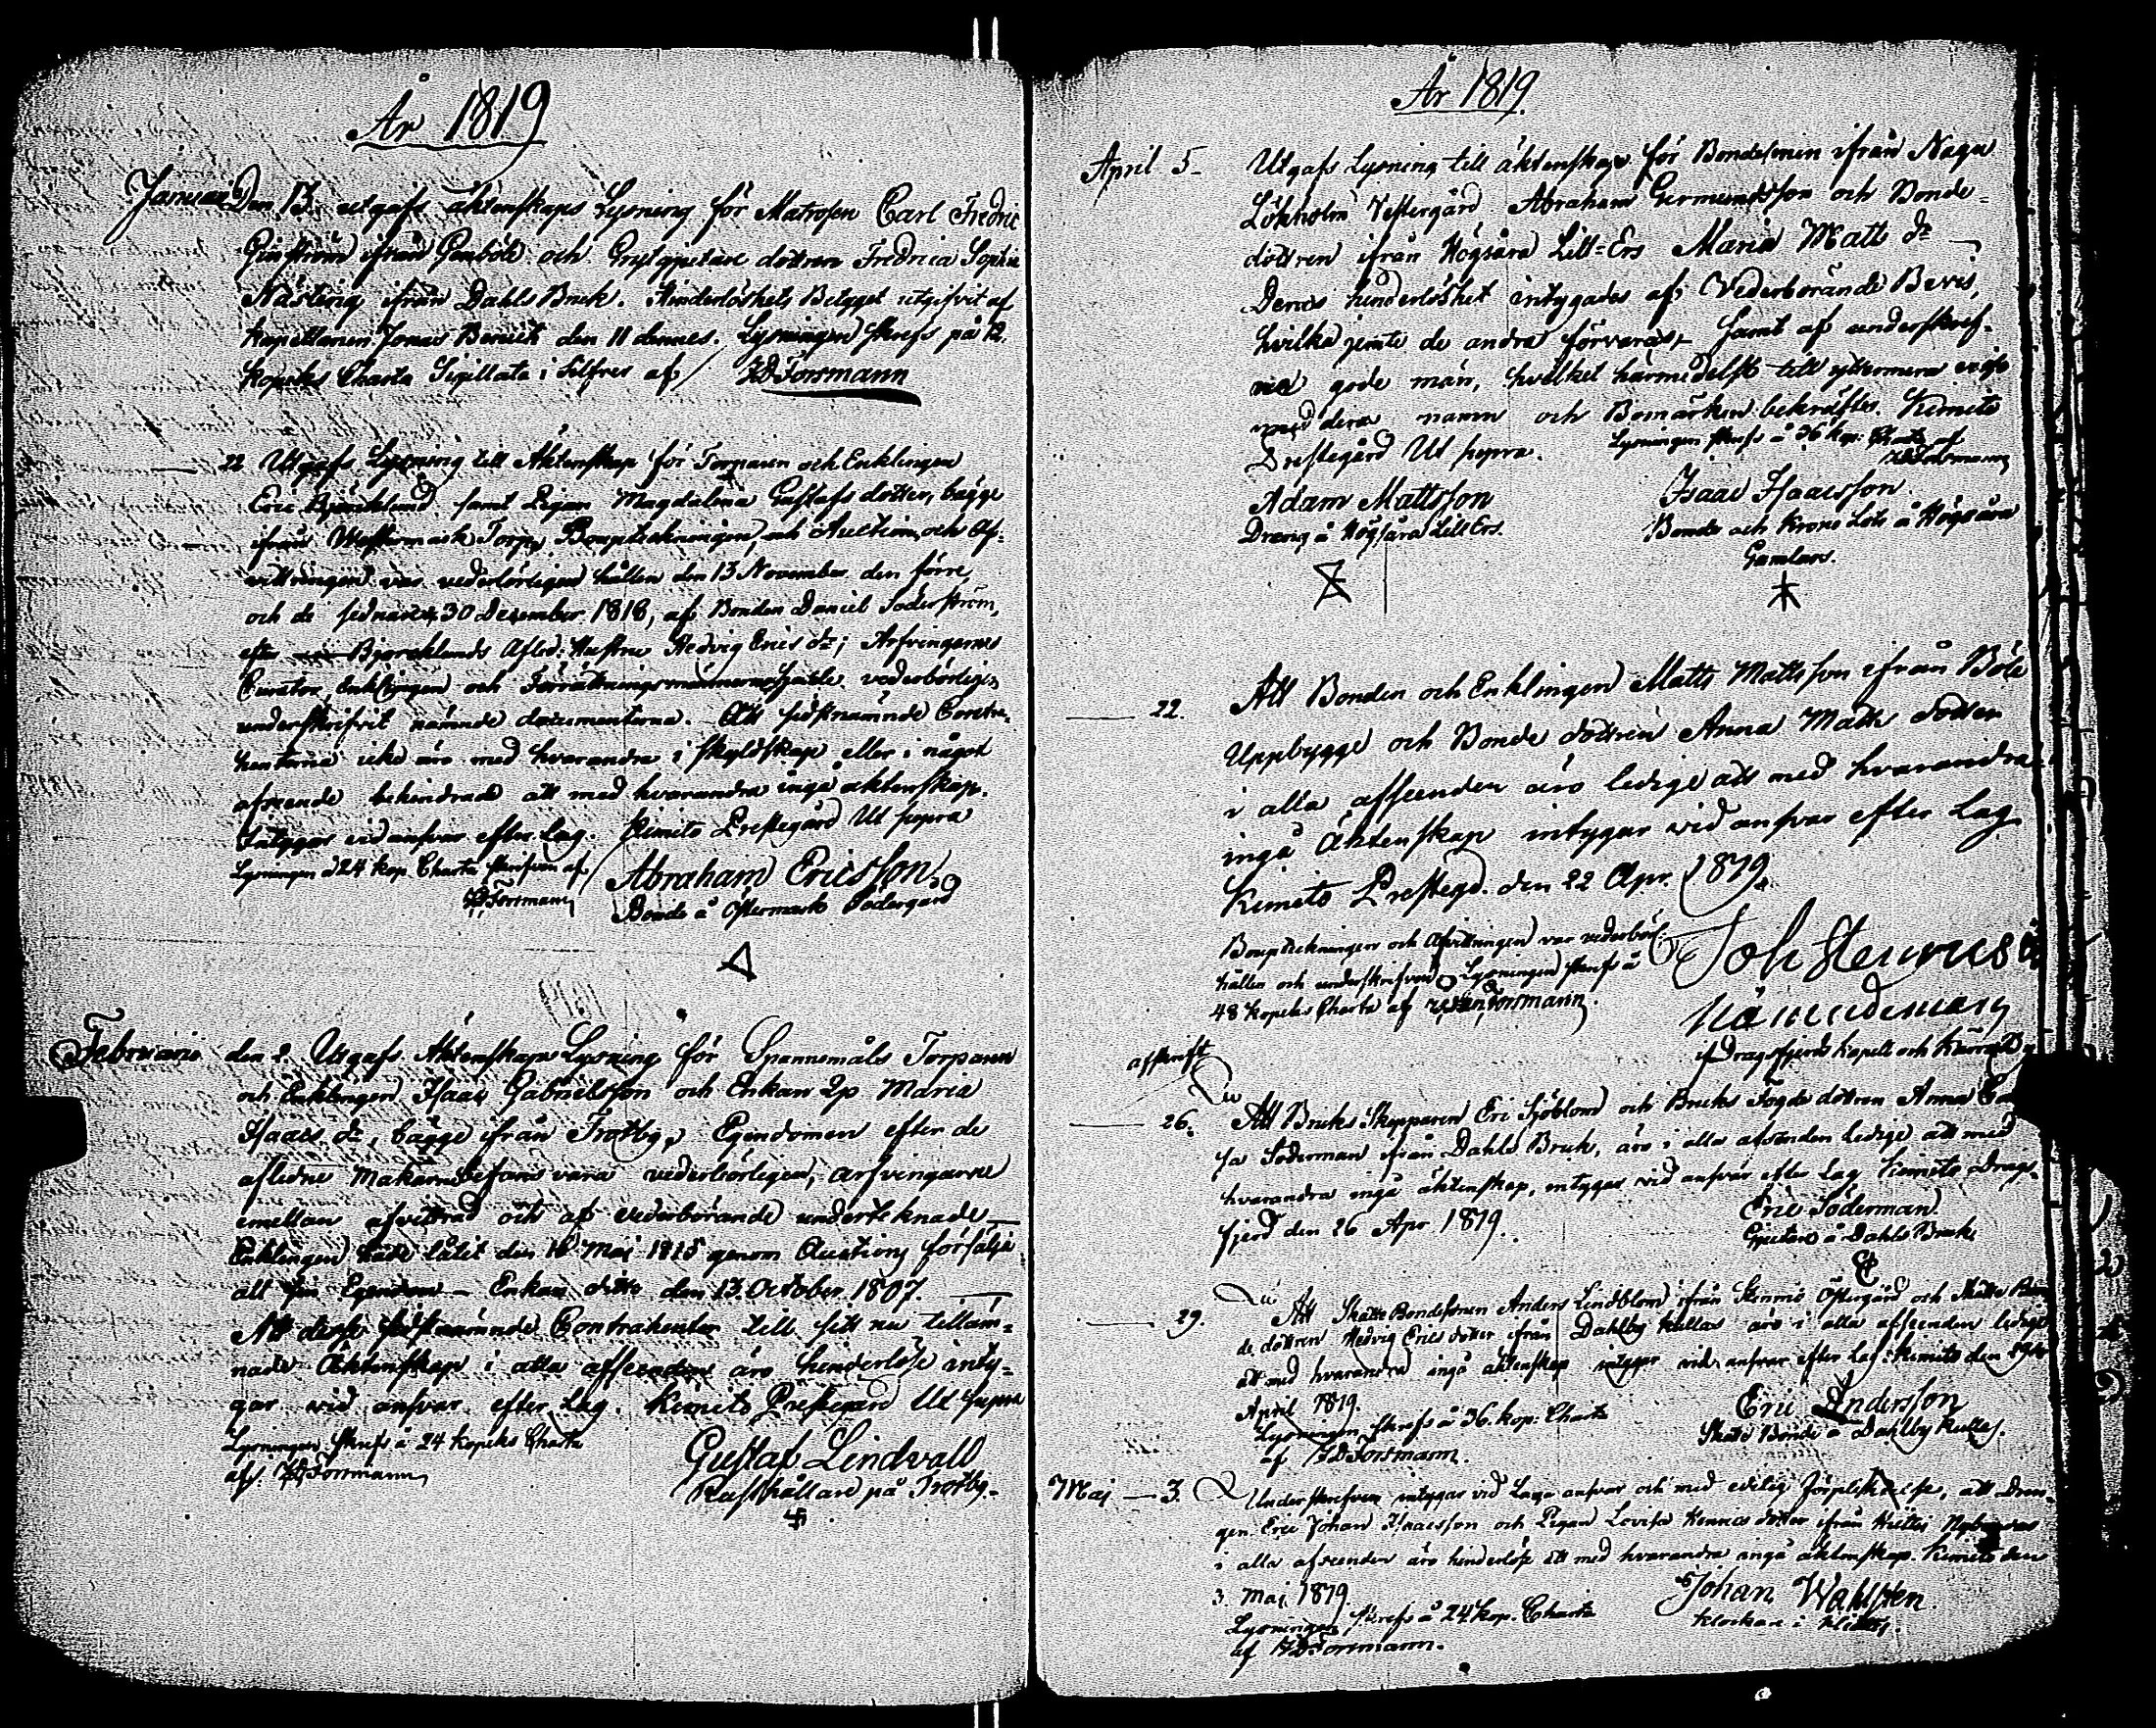 År 1819
Januarii Den 13. utgafs äktenskaps Lysning för Matrosen Carl Fredric
ifrån Genböle och dottren Fredrica Sophia
Nästling ifrån Dahls Bruk. Hinderlöshets Betyget utgifvit af
Kapellanen Jonas den 11 dennes. Lysningen skrefs på 12.
Kopeks Charta Sigillata i Silfver af HDForsmann
22 Utgafs Lysning till Äktenskap för Torparen och Enklingen
Eric Björcklund samt Pigan Magdalena Gustafs dotter, bägge
ifrån Torp, Boupteckningen, och Auction, och Af-
vittringen var vederbörligen hållen den 13 November den förre,
och de sednare 30 December 1818, af Bonden Daniel Söderström,
efter Björcklunds Afled: Hustru Hedvig Erics dr; Arfvingarnes
Curator, Enklingen och Förrättningsmännerne vederbörligen
underskrifvit nämnde documenterna. Att sistnämnde Contra-
henterna icke äro med hvarandra i skyldskap eller i något
afseende behindrade att med hvarandra ingå äktenskap.
Intygar vid ansvar efter Lag. Kimito Prestegård Ut supra
Lysningen å 24 kop. Charta skrefven af Abraham Ericsson,
HDForsmann Bonde å Östermark Södergård
Februarii den 2. Utgafs Äktenskaps Lysning för Spannemåls Torparen
och Enklingen Isaac Gabrielsson och Enkan Maria
Isaacs dr, bägge ifrån Trotby, Egendomen efter de
aflidne Makarne vara vederbörligen, arfvingarne
emellan afvittrad och af vederbörande undertecknade
Enklingen hade låtit den Maj 1815 genom Auction försälja
all sin Egendom – Enkan ditto den 13 October 1807.
Att desse sistnämnde Contrahenter till sitt nu tilläm-
nade Äktenskap i alla afseenden äro hinderlöse inty-
gar vid ansvar efter Lag. Kimito Prestegård Ut supra
Lysningen skrefs å 24 kopeks Charta Gustaf Lindvall
af HDForsmann Rusthållare på Trotby.
År 1819.
April 5. Utgafs Lysning till äktenskap för Bondesonen ifrån Nagu
Lökholm Vestergård Abraham Germundsson och Bonde-
dottren ifrån Högsåra Lill-Ers Maria Matts dr
Deras hinderlöshet intygades af Vederbörande Bevis,
hvilka jemte de andra förvaras, samt af underskref-
ne gode män, hvilket härmedelst till yttermera visso
med deras namn och Bomärken bekräftes. Kimito
Prestegård Ut supra. Lysningen skrefs å 36 kop: Charta af
HDForsmann
Adam Mattsson Isaac Isaacsson.
Dräng å Högsåra Lill Ers. Bonde och Krono Lots å Högsåra
Gamlars.
22. Att Bonden och Enklingen Matts Mattsson ifrån Böle
Uppbygge och Bonde dottren Anna Matts dotter
i alla afseenden äro ledige att med hvarandra
ingå Äktenskap intygar vid ansvar efter Lag
Kimito Prestegd. den 22 Apr. 1819.
Boupteckningen och Afvittringen var vederbörl.
hållen och underskrifven Lysningen skrefs å Joh Stenrus
48 Kopeks Charta af HDForsmann. Nämndeman
if Dragsfjerds Kapell och
afskrift
26. Att Bruks Skepparen Eric Sjöblom och Bruks Fogde dottren Anna
Söderman ifrån Dahls Bruk, äro i alla afseenden ledige att med
hvarandra ingå äktenskap, intygar vid ansvar efter Lag Kimito Drags-
fjerd den 26 Apr 1819. Eric Söderman.
Gjutare å Dahls Bruk
29. Att Skatte Bondesonen Anders Lindblom ifrån Stennio Östergård och Skatte Bon
de dottren Hedvig Erics dotter ifrån Dahlby Kullas äro i alla afseenden ledige
att med hvarandra ingå äktenskap intygar vid ansvar efter Lag: Kimito den 29
April 1819. Eric Andersson
Lysningen skrefs å 36. kop: Charta Skatte Bonde å Dahlby Kullas.
af HDForsmann.
Maj – 3. Underskrefven intygar vid Laga ansvar och med edelig förpliktelse, att Drän-
gen Eric Johan Isaacsson och Pigan Lovisa Henrics dotter ifrån Hitis
i alla afseenden äro hinderlöse att med hvarandra ingå äktenskap. Kimito den
3. Maj 1819. Johan Wahlsten.
Lysningen skrefs å 24 kop. Charta Klockare i Hitis.
af HDForsmann.